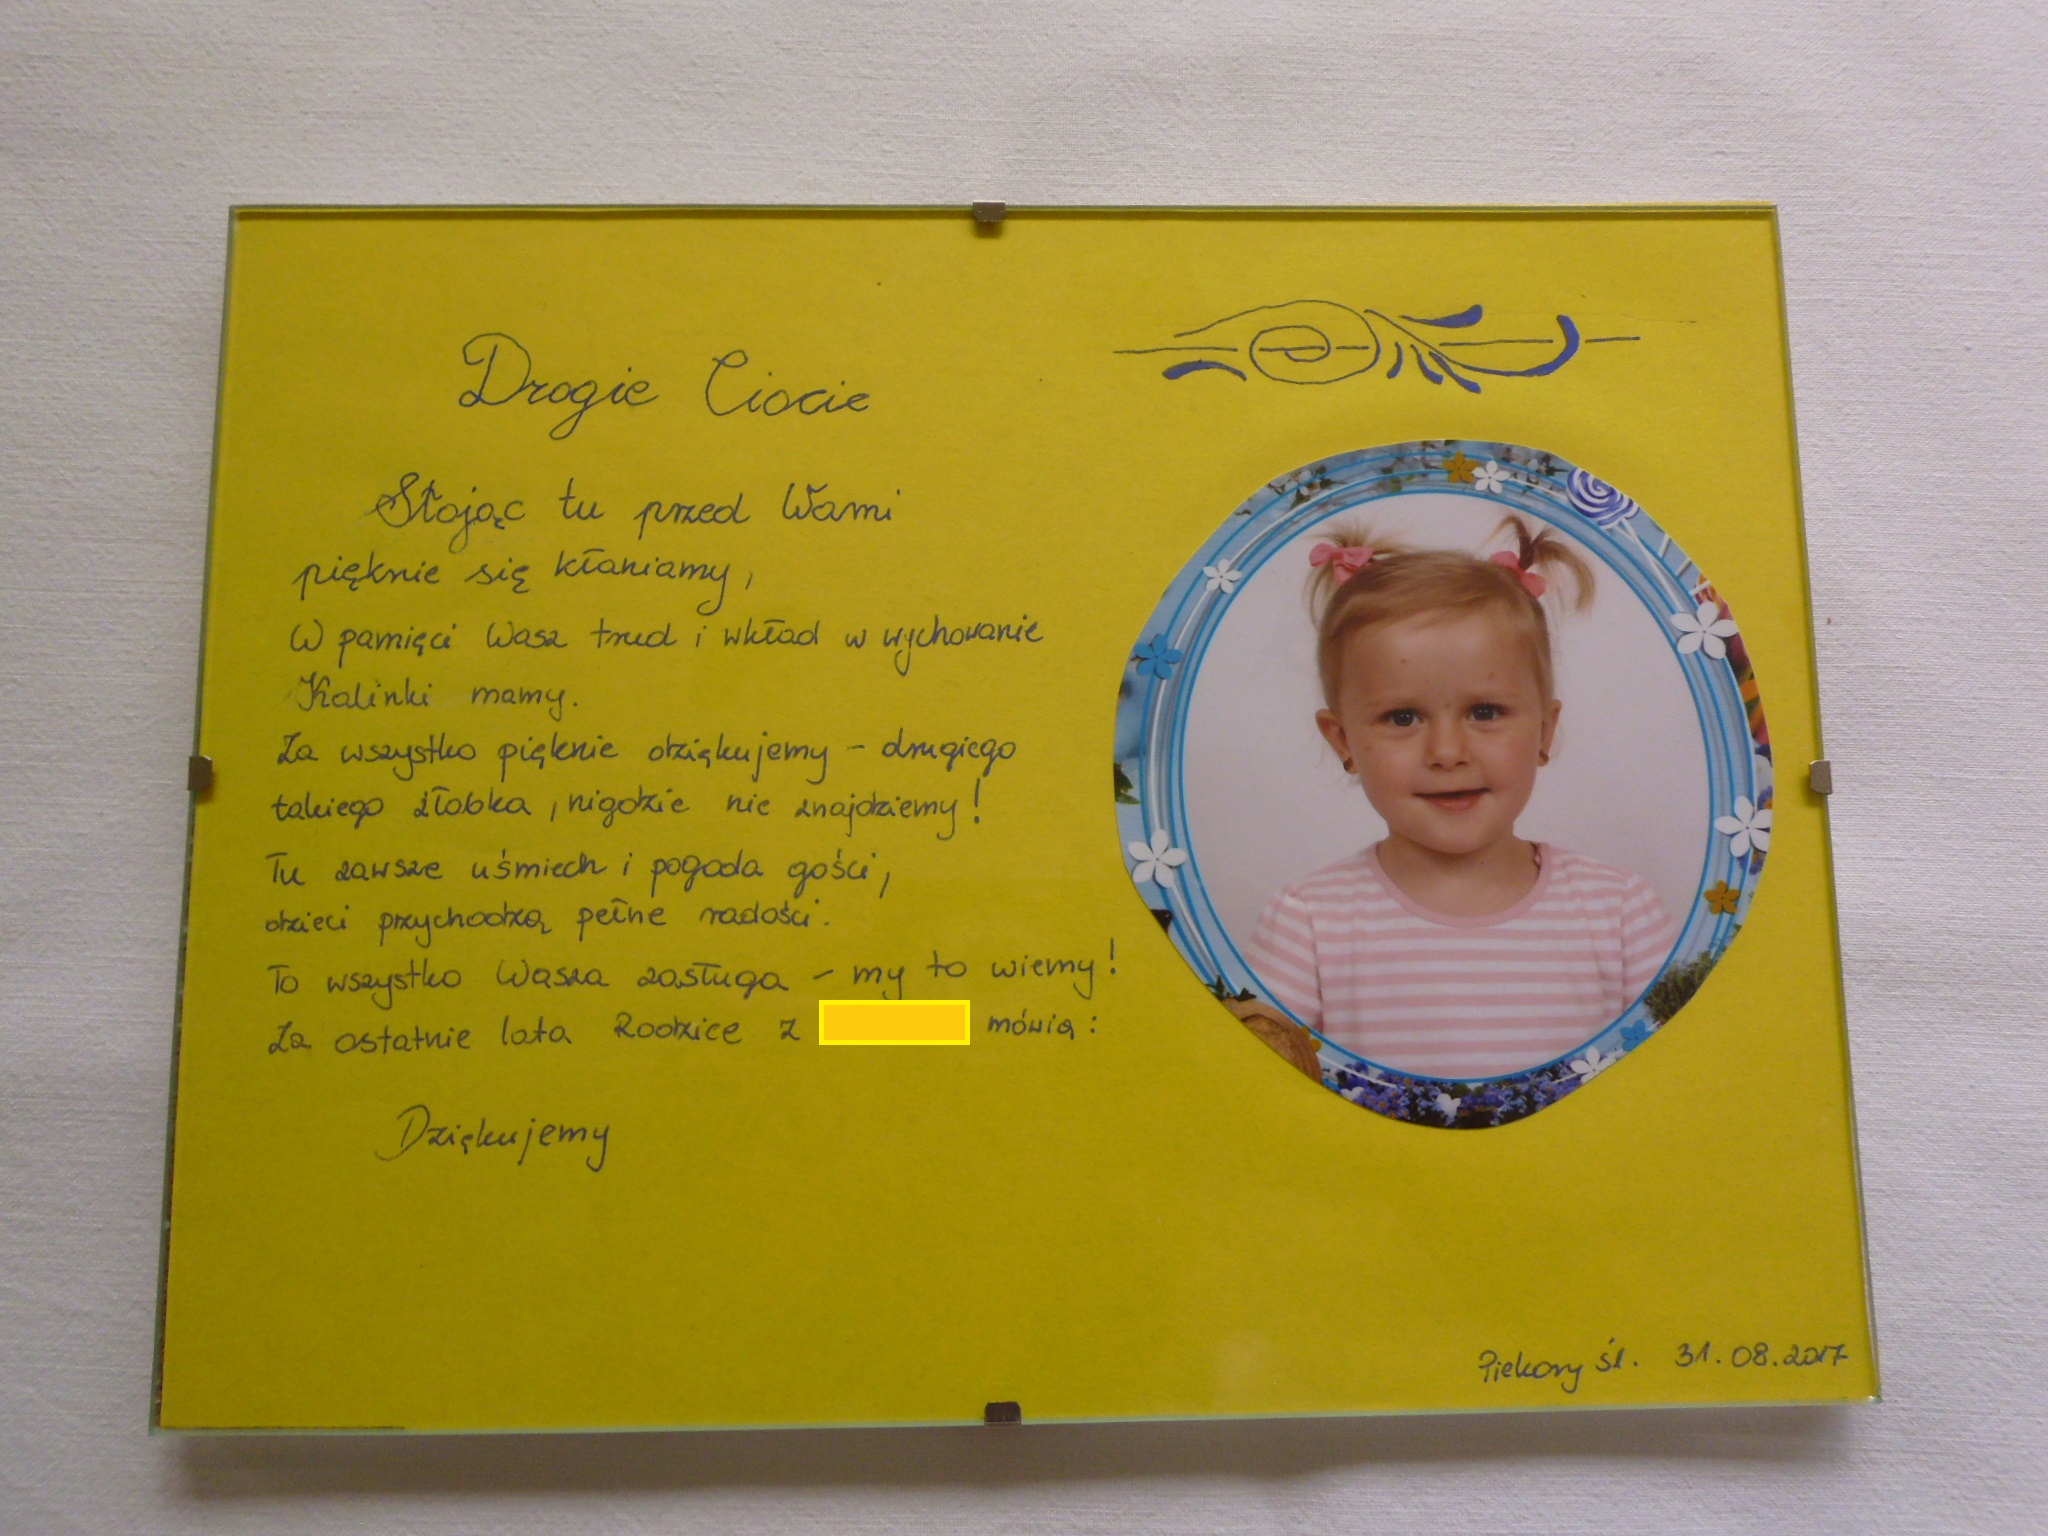 Drogie Ciocie
Stojąc tu przed Wami
pięknie się kłaniamy,
W pamięci Wasz trud i wkład w wychowanie
Kalinki mamy.
Za wszystko pięknie dziękujemy - drugiego
takiego żłobka, nigdzie nie znajdziemy!
Tu zawsze uśmiech i pogoda gości,
dzieci przychodzą pełne radości.
To wszystko Wasza zasługa - my to wiemy!
Za ostatnie lata Rodzice z mówią:
Dziękujemy
Piekary Śl. 31.08.2017